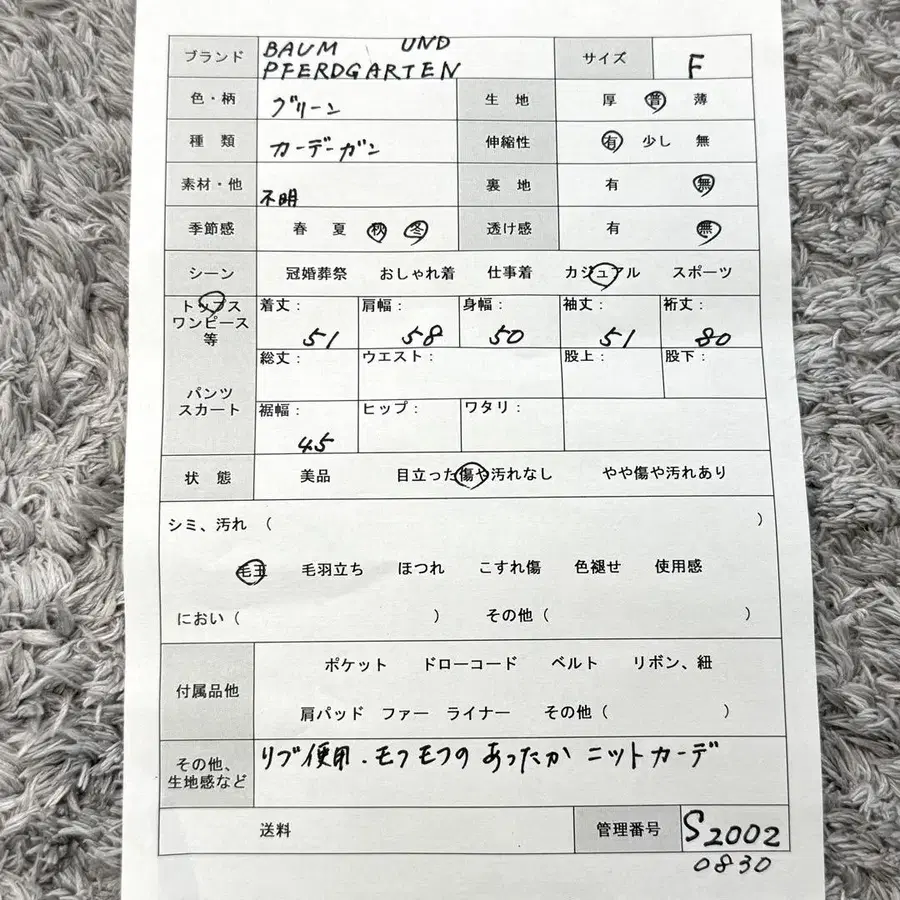 ブランド BAUM UND サイズ F
PFERDGARTEN
色・柄 グリーン 生地 厚 普 薄
種類 カーデーガン 伸縮性 有 少し 無
素材・他 不明 裏地 有 無
季節感 春 夏 秋 冬 透け感 有 無
シーン 冠婚葬祭 おしゃれ着 仕事着 カジュアル スポーツ
トップス 着丈： 肩幅： 身幅： 袖丈： 裄丈：
ワンピース
等 51 58 50 51 80
総丈： ウエスト： 股上： 股下：
パンツ
スカート 裾幅： ヒップ： ワタリ：
45
状態 美品 目立った傷や汚れなし やや傷や汚れあり
シミ、汚れ （ ）
毛玉 毛羽立ち ほつれ こすれ傷 色褪せ 使用感
におい（ ） その他（ ）
ポケット ドローコード ベルト リボン、紐
付属品他
肩パッド ファー ライナー その他（ ）
その他、 リブ使用.モフモフの あったか ニットカーデ
生地感など
送料 管理番号 S2002
0830